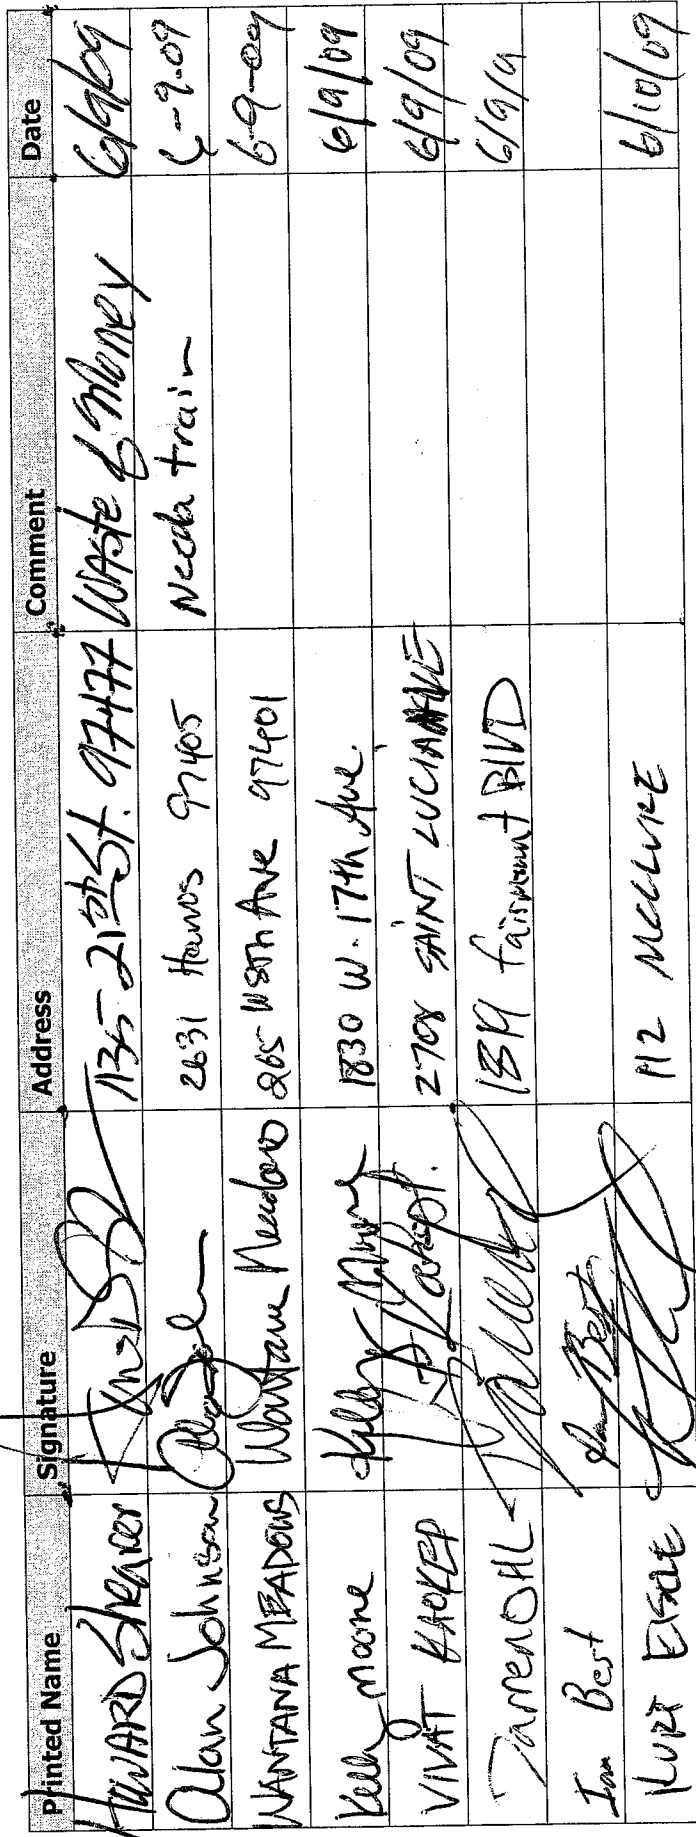 Printed Name Signature Address Comment Date
HOWARD Shearer 1135-21st St. 97477 WAste of Money 6/9/09
Alan Johnson 2631 Harris 97405 Need a train 6-9-09
WANTANA MEADOWS Wantana Meadows 265 W 8th Ave 97401 6-9-09
Kelly Moore Kelly Moore 1830 W. 17th Ave. 6/9/09
VIVAT KAOKEP 2708 SAINT LUCIA AVE 6/9/09
Darren OHL 1819 Fairmount BlVD 6/9/9
Ian Best Ian Best
KURT 112 MCCLURE 6/10/09